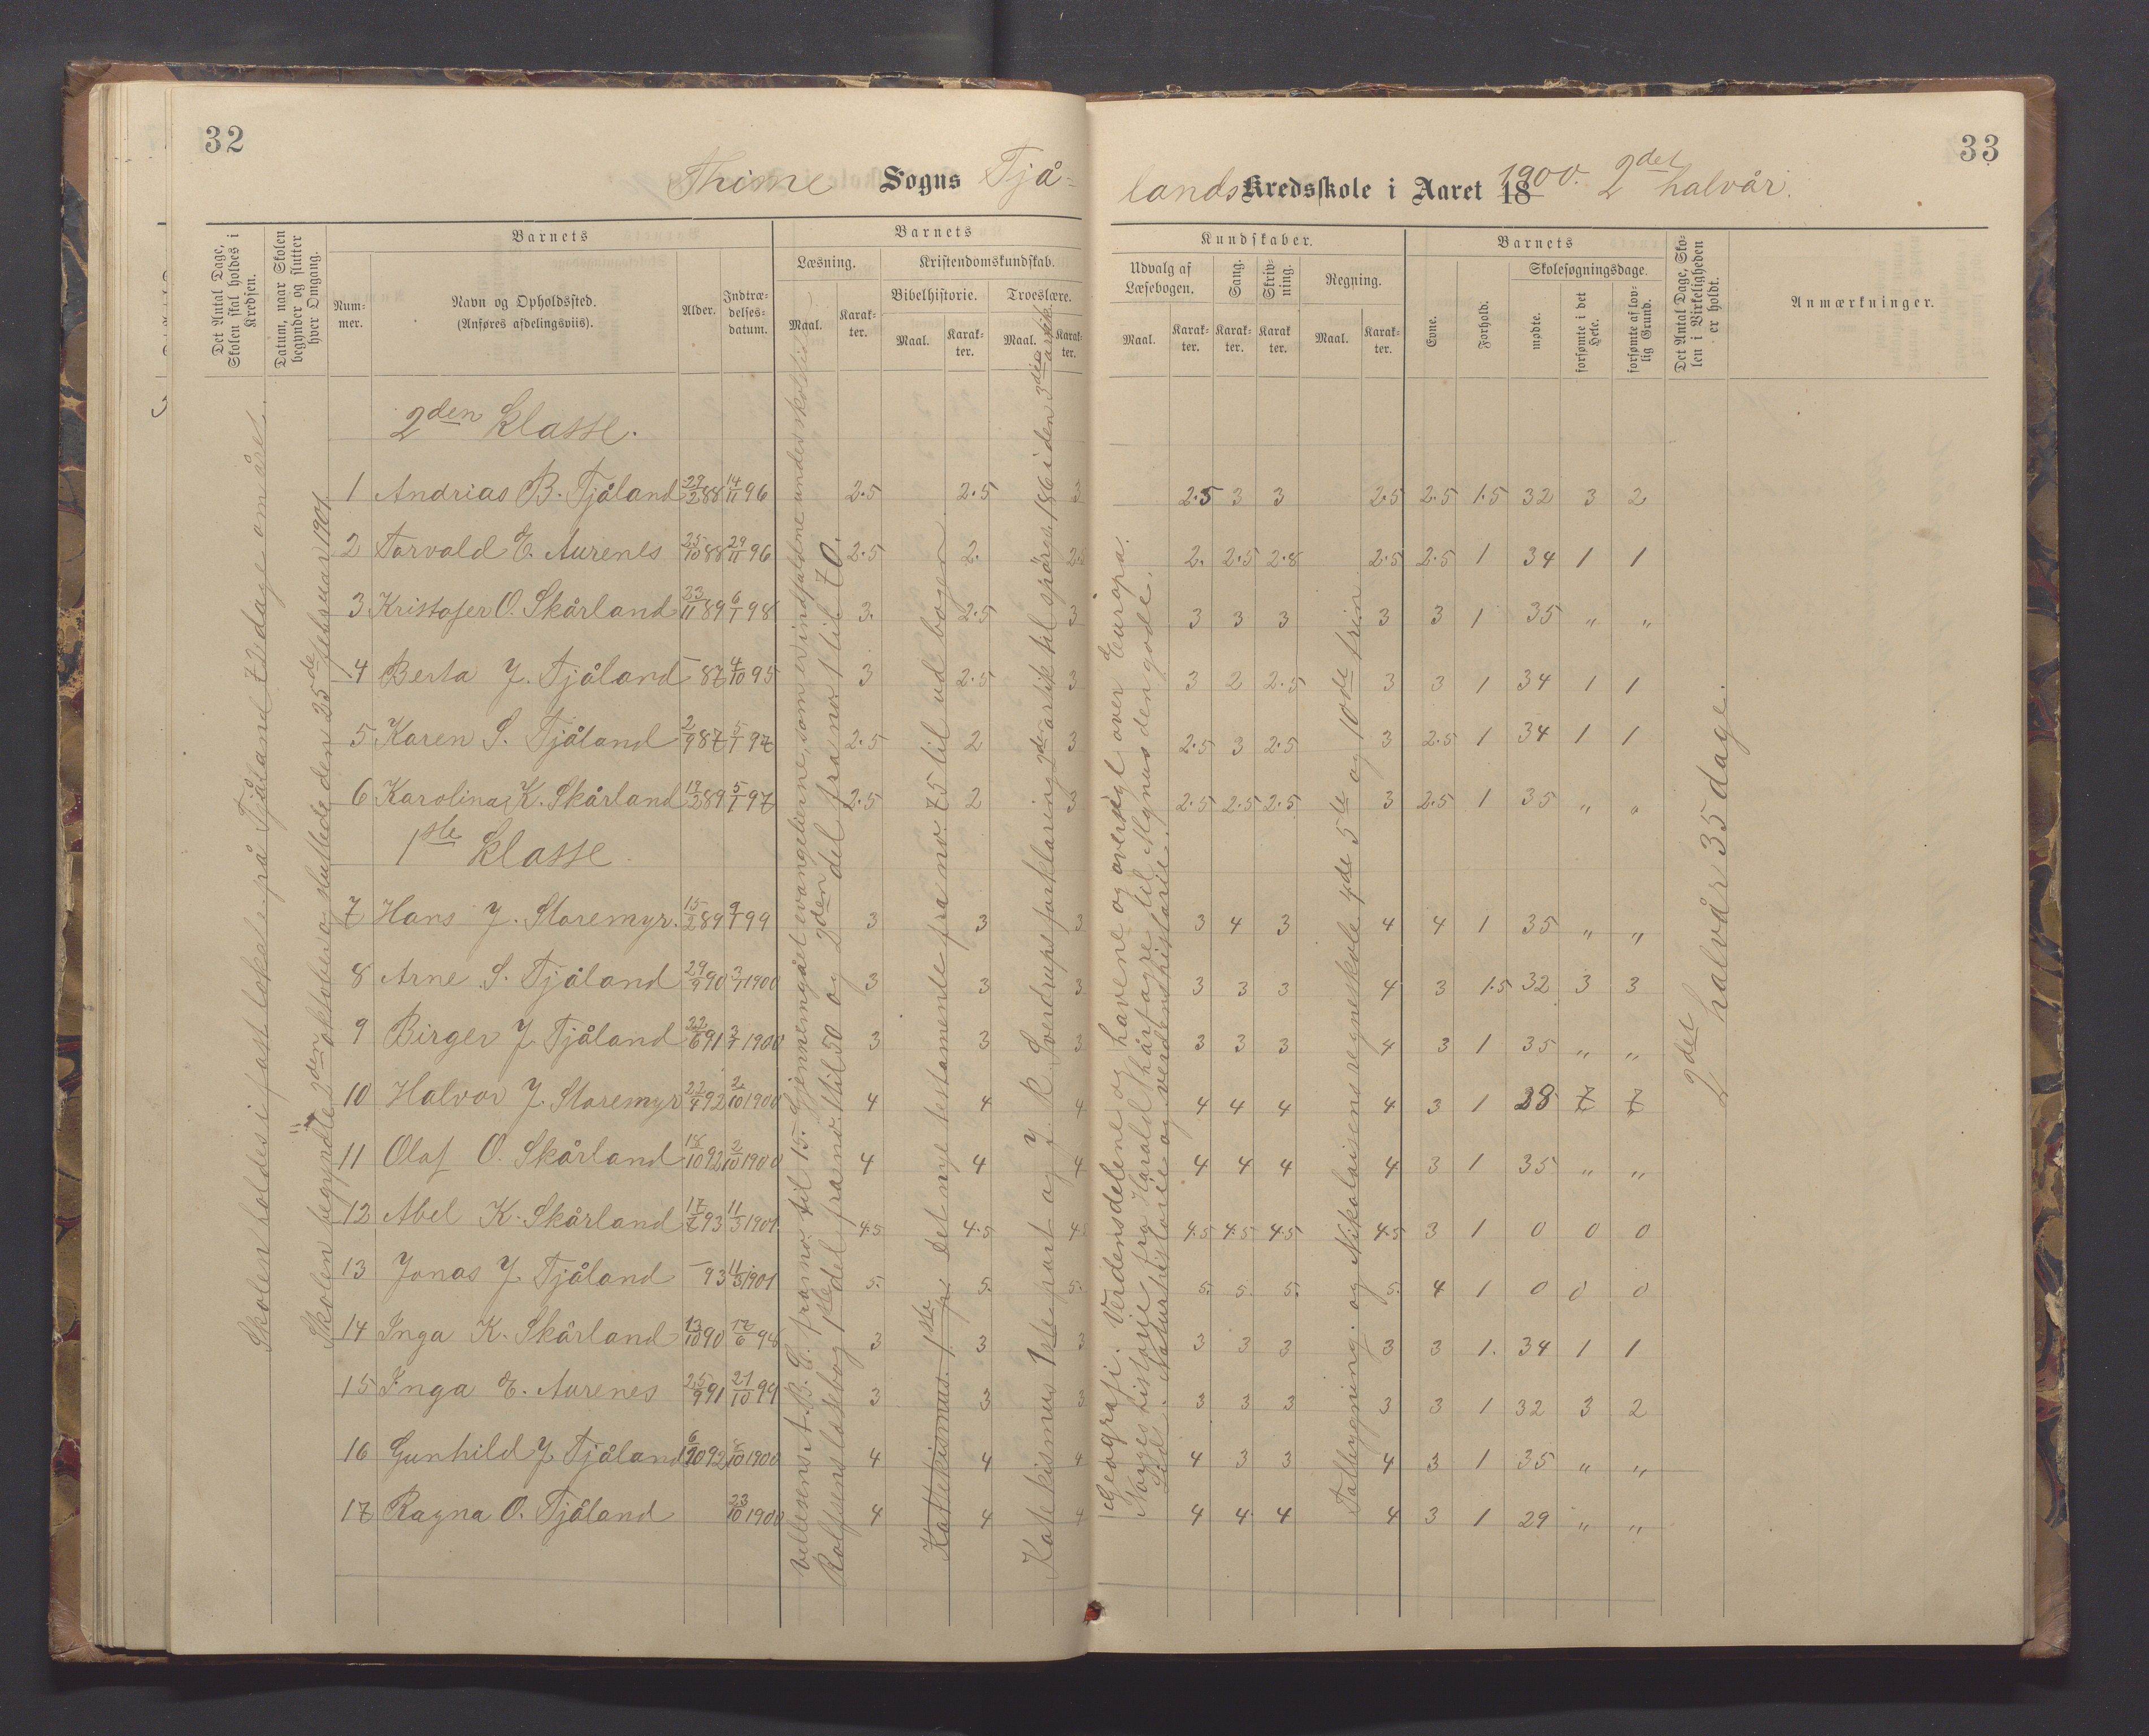 32
33
Thime Sogns Tjå-
lands Kredsskole i Aaret 18 1900. 2det halvår.
Det Antal Dage, Skolen skal holdes i Kredsen.
Datum, naar Skolen begynder og slutter hver Omgang.
Barnets
Num-mer.
Navn og Opholdssted.
(Anføres afdelingsviis).
Alder.
Indtræ-delses-datum.
Barnets
Læsning.
Maal.
Karak-ter.
Kristendomskundskab.
Bibelhistorie.
Maal.
Karak-ter.
Troeslære.
Maal.
Karak-ter.
Kundskaber.
Udvalg af Læsebogen.
Maal.
Karak-ter.
Sang.
Karak-ter.
Skriv-ning.
Karak ter.
Regning.
Maal.
Karak-ter.
Barnets
Evne.
Forhold.
Skolesøgningsdage.
mødte.
forsømte i det Hele.
forsømte af lov-lig Grund.
Det Antal Dage, Sko-len i Virkeligheden er holdt.
Anmærkninger.
Skolen holdes i fast lokale på Tjåland 72 dage om året.
Skolen begyndte 2den oktober og sluttede den 25de februar 1901
2den Klasse.
1 Andrias B. Tjåland 22/2 88 14/11 96 2.5 2.5 3 2.5 3 3 2.5 2.5 1.5 32 3 2
2 Torvald E. Aurenes 25/10 88 29/11 96 2.5 2. 2.5 2. 2.5 2.8 2.5 2.5 1 34 1 1
3 Kristofer O. Skårland 23/11 89 6/1 98 3. 2.5 3 3 3 3 3 3 1 35 " "
4 Berta J. Tjåland - 87 4/10 95 3 2.5 3 3 2 2.5 3 3 1 34 1 1
5 Karen S. Tjåland 2/9 87 5/1 97 2.5 2 3 2.5 3 2.5 3 2.5 1 34 1 1
6 Karolina K. Skårland 19/2 89 5/1 97 2.5 2 3 2.5 2.5 2.5 3 2.5 1 35 " "
1ste Klasse.
7 Hans J. Storemyr. 15/2 89 9/1 99 3 3 3 3 4 3 4 4 1 35 " "
8 Arne S. Tjåland 29/9 90 3/7 1900 3 3 3 3 3 3 4 3 1.5 32 3 3
9 Birger J Tjåland 22/6 91 3/7 1900 3 3 3 3 3 3 4 3 1 35 " "
10 Halvor J. Storemyr 22/4 92 2/10 1900 4 4 4 4 4 4 4 3 1 28 7 7
11 Olaf O. Skårland 18/10 92 2/10 1900 4 4 4 4 4 4 4 3 1 35 " "
12 Abel K. Skårland 17/7 93 11/3 1901 4.5 4.5 4.5 4.5 4.5 4.5 4.5 3 1 0 0 0
13 Jonas J Tjåland - 93 11/3 1901 5. 5. 5. 5. 5. 5. 5. 4 1 0 0 0
14 Inga K. Skårland 13/10 90 17/6 98 3 3 3 3 3 3 3 3 1. 34 1 1
15 Inga E. Aurenes 25/9 91 21/10 99 3 3 3 3 3 3 3 3 1 32 3 2
16 Gunhild J Tjåland 6/10 92 8/10 1900 4 4 4 4 3 3 4 3 1 35 " "
17 Ragna O. Tjåland 23/10 1900 4 4 4 4 4 4 4 3 1 29 " "
A. B. C. fra no. 1 til 15. Gjennemgået evangelierne, som er indfaldne under skoletiden.
Rolfsens læsebog 1ste del fra no. 1 til 50 og 2den del fra no. 1 til 70.
Det nye testamente fra no. 75 til ud bogen.
Katekismus 1ste part og J. R. Sverdrups forklaring 2den artikel til spørsm. 186 i den 3die artik.
Geografi. Verdensdelene og havene og oversigt over Europa.
Norges historie fra Harald Hårfagre til Magnus den gode.
Naturhistorie og verdenshistorie.
Tallbygning og Nikolaisens regneskole 4de 5te og 10de trin.
2det halvår 35 dage.